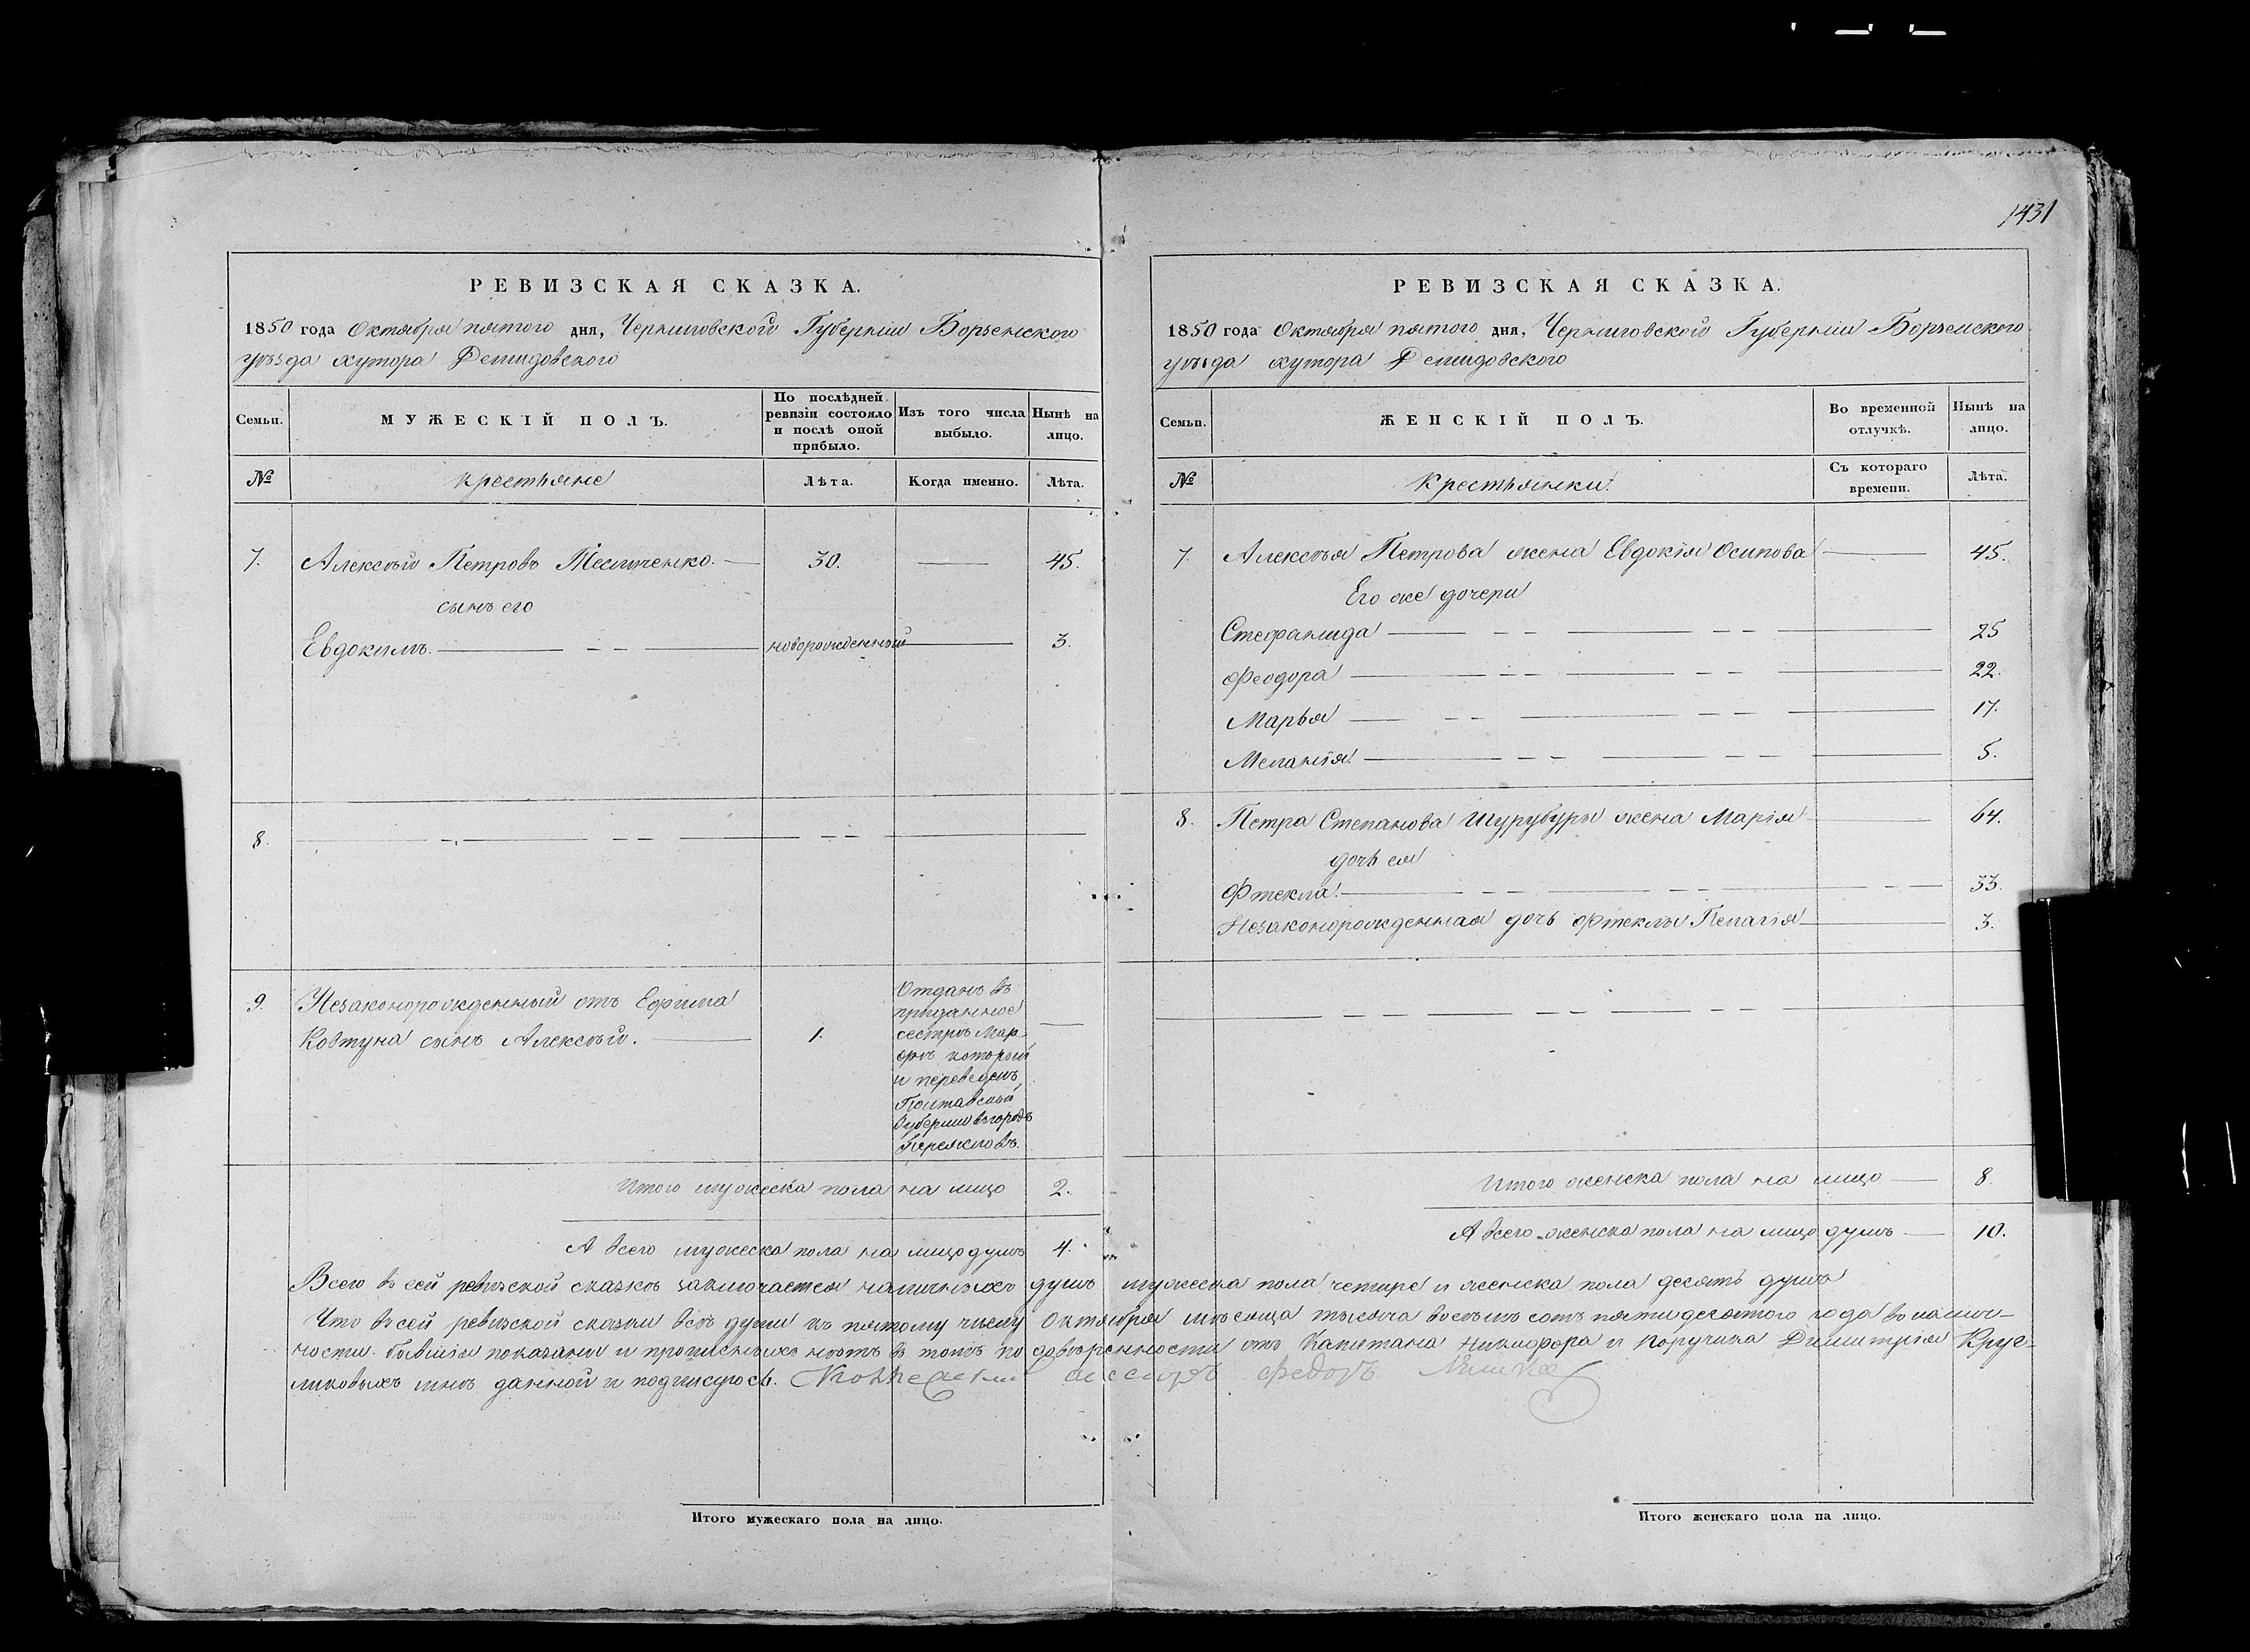 1431
РЕВИЗСКАЯ СКАЗКА.
1850 года Октября пятого дня, Черниговской Губерніи Борзенского
уѣзда хутора Демидовского
Семьи.
МУЖЕСКІЙ ПОЛЪ.
По послѣдней ревизіи состояло и послѣ оной прибыло.
Изъ того числа выбыло.
Нынѣ на лицо.
№
Крестьяне
Лѣта.
Когда именно.
Лѣта.
7. Алексѣй Петровъ 30. 45.
сынъ его
Евдокимъ. новорожденный 3.
8.
9. Незаконорожденный отъ Ефима
Ковтуна сынъ Алексѣй. 1.
Отданъ въ
приданное
сестрѣ Мар-
фѣ который
и переведенъ
Полтавской
Губерніи въ городъ
Итого мужеска пола на лицо 2.
А всего мужеска пола на лицо душъ 4.
РЕВИЗСКАЯ СКАЗКА.
1850 года Октября пятого дня, Черниговской Губерніи Борзенского
уѣзда хутора Демидовского
Семьи.
ЖЕНСКІЙ ПОЛЪ.
Во временной отлучкѣ.
Нынѣ на лицо.
№
Крестьянки.
Съ котораго времени.
Лѣта.
7. Алексѣя Петрова жена Евдокія Осипова 45.
Его же дочери
Стефанида 25
Феодора 22.
Марья 17.
Меланія 5.
8. Петра Степанова Шурубуры жена Марія 64.
дочь ея
Фтекла. 33.
Незаконорожденная дочь Фтеклы Пелагія 3.
Итого женска пола на лицо 8.
А всего женска пола на лицо душъ 10.
Всего въ сей ревизской сказкѣ заключается наличныхъ душъ мужеска пола четыре и женска пола десять душъ
Что въ сей ревизской сказки всѣ души къ пятому числу Октября мѣсяца тысяча восемъ сотъ пятидесятого года въ налич-
ности бывшія показаны и прописныхъ нѣтъ въ томъ по довѣренности отъ Капитана Никифора и Поручика Димитрія Крус-
ликовыхъ мнѣ данной и подписуюсь. Коллежскій асесоръ Федоръ
Итого мужескаго пола на лицо.
Итого женскаго пола на лицо.